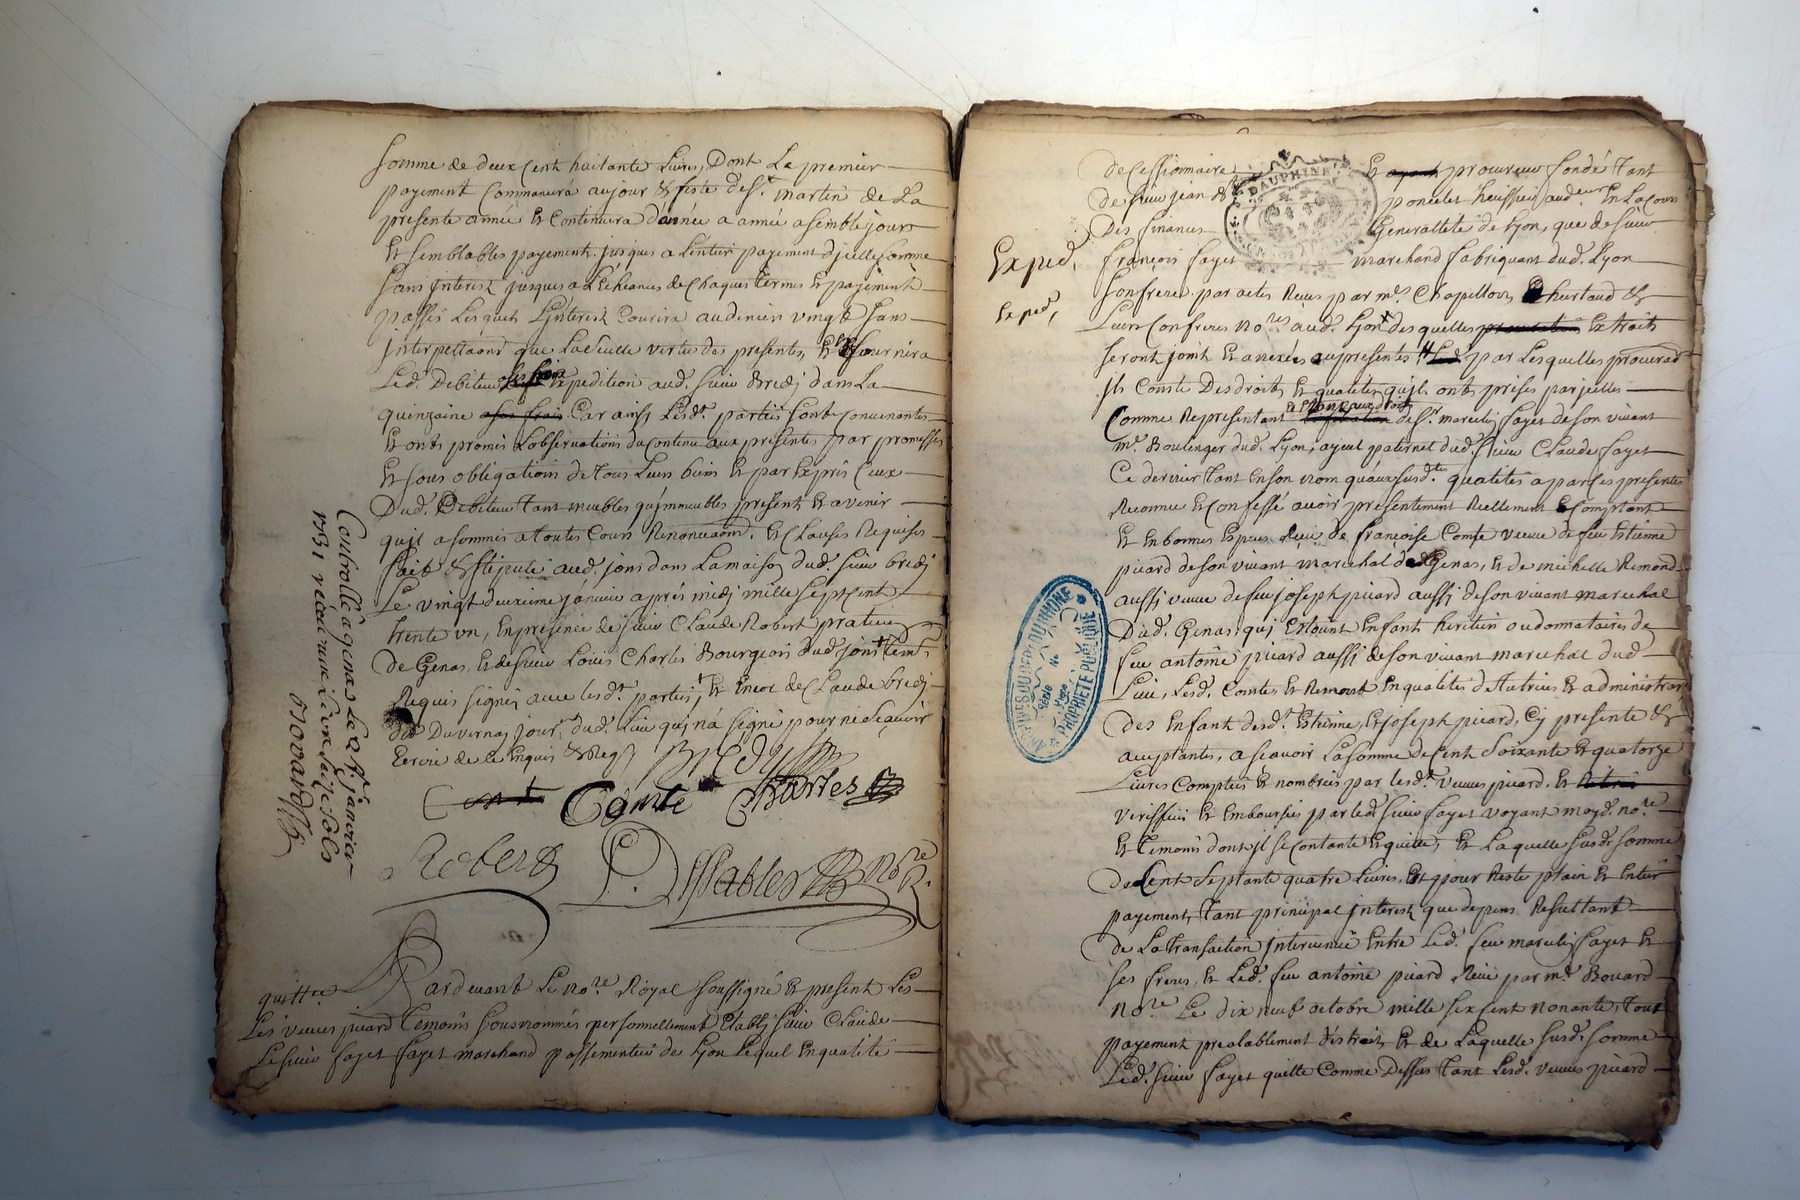 somme de deux cent huitante livres, Dont Le premier
payement Commancera au jour & feste de St. martin de La
presente année Et Continuera d'année a année a semble jour
Et semblables payements jusques a L'entier payement d'jcelle somme
sans jnterest jusques a L'Echeances de Chaques termes Et pajement
passés Lesquels L'jnterest Courira au denier vingt sans
jnterpellaon que La seulle vertu des presentes, Et fournira
Led. Debiteur Expedition aud. sieur Bredj dans La
quinzaine a ses frais Car ainsj Lesd. parties sont Convenantes
Et ont promis L'observations du Contenu aux presentes par promesses
Et sous obligations de tous Leurs biens Et par Exprès Ceux
Dud. Debiteur tant meubles qu'jmmeubles present Et avenir
qu'jl a sommis a toutes Cours Renonciaons. Et Clauses Requises
fait & stipulé aud. jons dans La maison dud. sieur bredj
Le vingt deuxieme janvier après midj mille sept cent
trente un, En presence de sieur Claude Robert praticien
de Genas Et de sieur Louis Charles Bourgeois dud. jons temt
Requis signés avec lesd. parties, Et Encor de Claude bredj
dit Duvernaj jour. dud. Lieu quj n'a signé pour ne sçavoir
Ecrire de ce Enquis & Req.
Bredy
Comte Charles
Robert P. Dessables Nore R.
Controllé a genas Le 2 f. janvier
1731 reçu une Livre seize sols
Bovard
quittce Pardevant Le nore Royal soussigné Et present Les
Les veuves picard temoins sousnommés personnellement Etablj sieur Claude
Le sieur fayet fayet marchand passementier de Lyon Lequel En qualité
Exped.
Exped.
DAUPHINE
de Cessionnaire Et ayant procureur fondé tant
De sieur jean poncelet huissier aud. En La Cour
Des finances Generallité de Lyon, que de sieur
françois fayet marchand fabriquant dud. Lyon
son frere par actes Reçus par me. Chapillon, & hurtaud &
Leurs Confreres nores aud. Lyon desquelles Extraits
seront joint Et anexés au presentes par Lesquelles procuraon
jls Conste Des droits Et qualités qu'jl ont prises par jcelles
Comme Representant de sr. marcelin fayet de son vivant
me. Boulenger dud. Lyon, ayeul paternel dud. sieur Claude fayet
Ce dernier tant En son nom qu'aux susd. qualités a par ses presentes
Reconnu Et Confessé avoir presentement Reellement & Comptant
Et En bonnes Especes Reçu de françoise Comte veuve de feu Estienne
picard de son vivant marechal de Genas, Et de michelle Remond
aussi veuve de feu joseph picard aussj de son vivant marechal
Dud. Genas, quj Estoint Enfant heritier ou donnataires de
feu antoine picard aussj de son vivant marechal dud.
Lieu, Lesd. Comte, Et Remond En qualités de tutrices Et administrar
Des Enfant desd. Estienne, Et joseph picard, Cy presente &
acceptantes, a sçavoir La somme de Cent soixante Et quatorze
Livres Comptées Et nombrées par lesd. veuves picard, Et
veriffiée Et Emboursées par led. sieur fayet voyant moyd. nore
Et temoins dont jl se Contante Et quitte, Et La quelle susd. somme
de Cent septante quatre Livres, Est pour Reste plain Et Entier
payement, tant principal jnterest que depens Resultant
de La transaction jntervenue Entre Led. feu marcelin fayet Et
ses freres, Et Led. feu antoine picard Reçue par me. Bovard
Nore Le dix neuf octobre mille six cent nonante, tout
payement prealablement d'istrait, Et de Laquelle susd. somme
Led. sieur fayet quitte Comme Dessus tant Lesd. veuves picard
ARCHIVES DU DEPT DU RHONE
Série
PROPRIÉTÉ PUBLIQUE